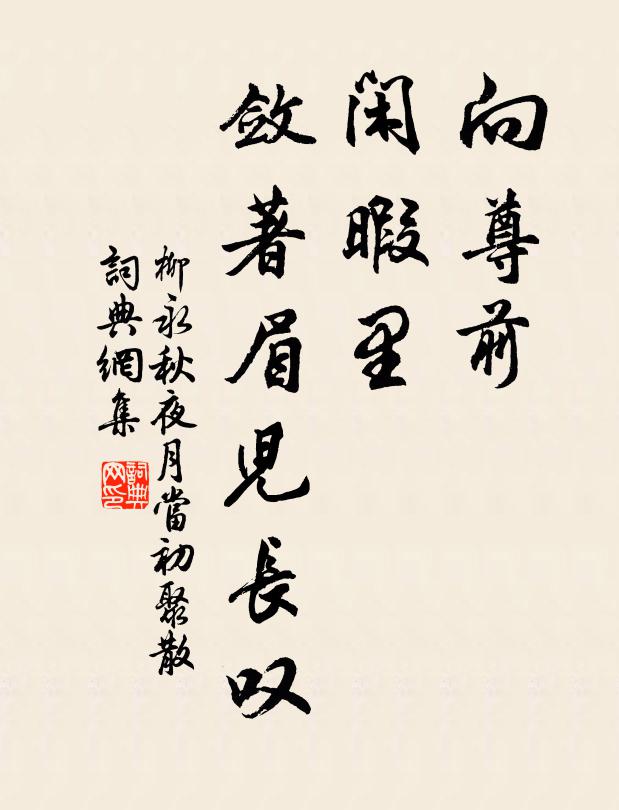 向尊前
閑暇里
斂著眉兒長叹
柳永秋夜月當初聚散
詞典網集
詞典网印